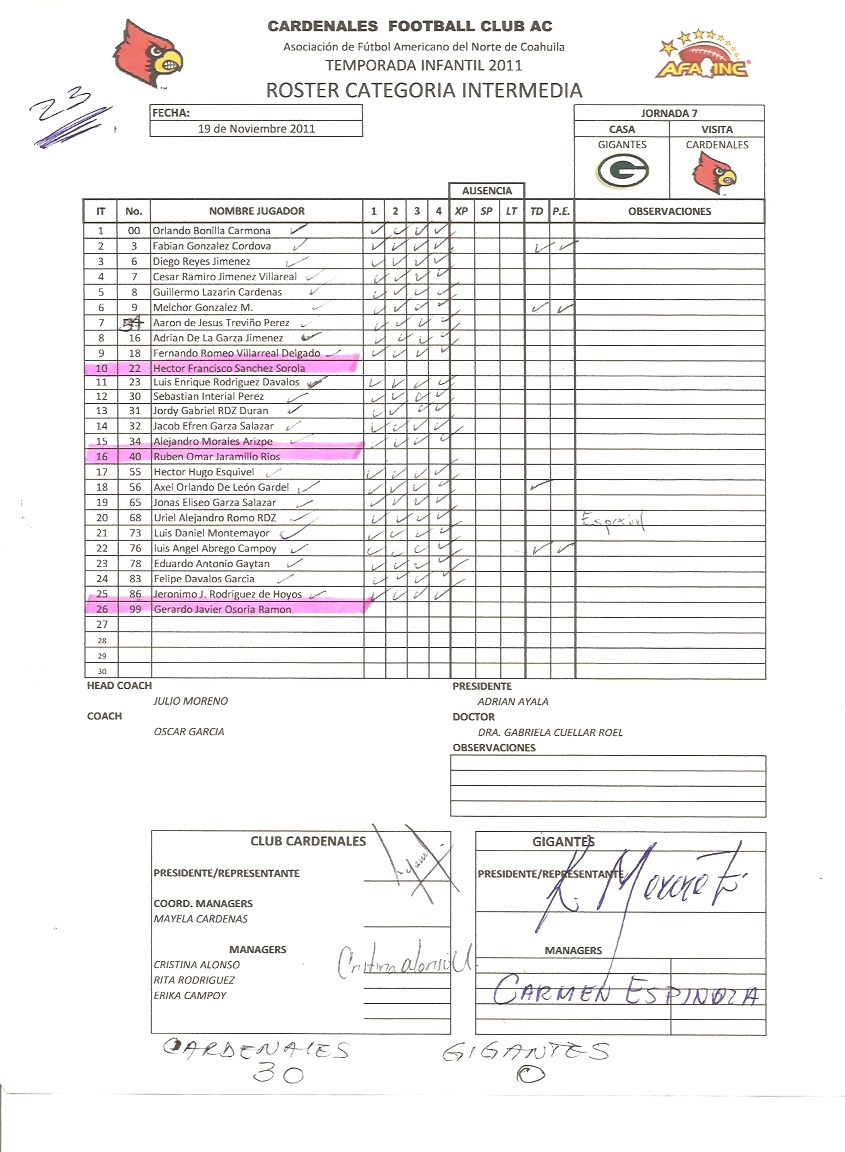 CARDENALES FOOTBALL CLUB AC
Asociación de Fútbol Americano del Norte de Coahuila
TEMPORADA INFANTIL 2011
ROSTER CATEGORIA INTERMEDIA
AFAINC
23
FECHA:
19 de Noviembre 2011
JORNADA 7
CASA VISITA
GIGANTES CARDENALES
G
AUSENCIA
IT No. NOMBRE JUGADOR 1 2 3 4 XP SP LT TD P.E. OBSERVACIONES
1 00 Orlando Bonilla Carmona ✓ ✓ ✓ ✓ ✓
2 3 Fabian Gonzalez Cordova ✓ ✓ ✓ ✓ ✓ ✓ ✓
3 6 Diego Reyes Jimenez ✓ ✓ ✓ ✓ ✓
4 7 Cesar Ramiro Jimenez Villareal ✓ ✓ ✓ ✓ ✓
5 8 Guillermo Lazarin Cardenas ✓ ✓ ✓ ✓ ✓
6 9 Melchor Gonzalez M. ✓ ✓ ✓ ✓ ✓ ✓ ✓
7 Aaron de Jesus Treviño Perez ✓ ✓ ✓ ✓ ✓
8 16 Adrian De La Garza Jimenez ✓ ✓ ✓ ✓ ✓
9 18 Fernando Romeo Villarreal Delgado ✓ ✓ ✓ ✓ ✓
10 22 Hector Francisco Sanchez Sorola
11 23 Luis Enrique Rodriguez Davalos ✓ ✓ ✓ ✓ ✓
12 30 Sebastian Interial Perez ✓ ✓ ✓ ✓ ✓
13 31 Jordy Gabriel RDZ Duran ✓ ✓ ✓ ✓ ✓
14 32 Jacob Efren Garza Salazar ✓ ✓ ✓ ✓ ✓
15 34 Alejandro Morales Arizpe ✓ ✓ ✓ ✓ ✓
16 40 Ruben Omar Jaramillo Rios
17 55 Hector Hugo Esquivel ✓ ✓ ✓ ✓ ✓
18 56 Axel Orlando De León Gardel ✓ ✓ ✓ ✓ ✓ ✓
19 65 Jonas Eliseo Garza Salazar ✓ ✓ ✓ ✓ ✓
20 68 Uriel Alejandro Romo RDZ ✓ ✓ ✓ ✓ ✓
21 73 Luis Daniel Montemayor ✓ ✓ ✓ ✓ ✓
22 76 luis Angel Abrego Campoy ✓ ✓ ✓ ✓ ✓ ✓ ✓
23 78 Eduardo Antonio Gaytan ✓ ✓ ✓ ✓ ✓
24 83 Felipe Davalos Garcia ✓ ✓ ✓ ✓ ✓
25 86 Jeronimo J. Rodriguez de Hoyos ✓ ✓ ✓ ✓ ✓
26 99 Gerardo Javier Osoria Ramon
27
28
29
30
HEAD COACH PRESIDENTE
JULIO MORENO ADRIAN AYALA
COACH DOCTOR
OSCAR GARCIA DRA. GABRIELA CUELLAR ROEL
OBSERVACIONES
CLUB CARDENALES
PRESIDENTE/REPRESENTANTE
COORD. MANAGERS
MAYELA CARDENAS
MANAGERS
CRISTINA ALONSO
Cristina alonso U
RITA RODRIGUEZ
ERIKA CAMPOY
GIGANTES
PRESIDENTE/REPRESENTANTE
MANAGERS
CARMEN ESPINOZA
CARDENALES GIGANTES
30 0